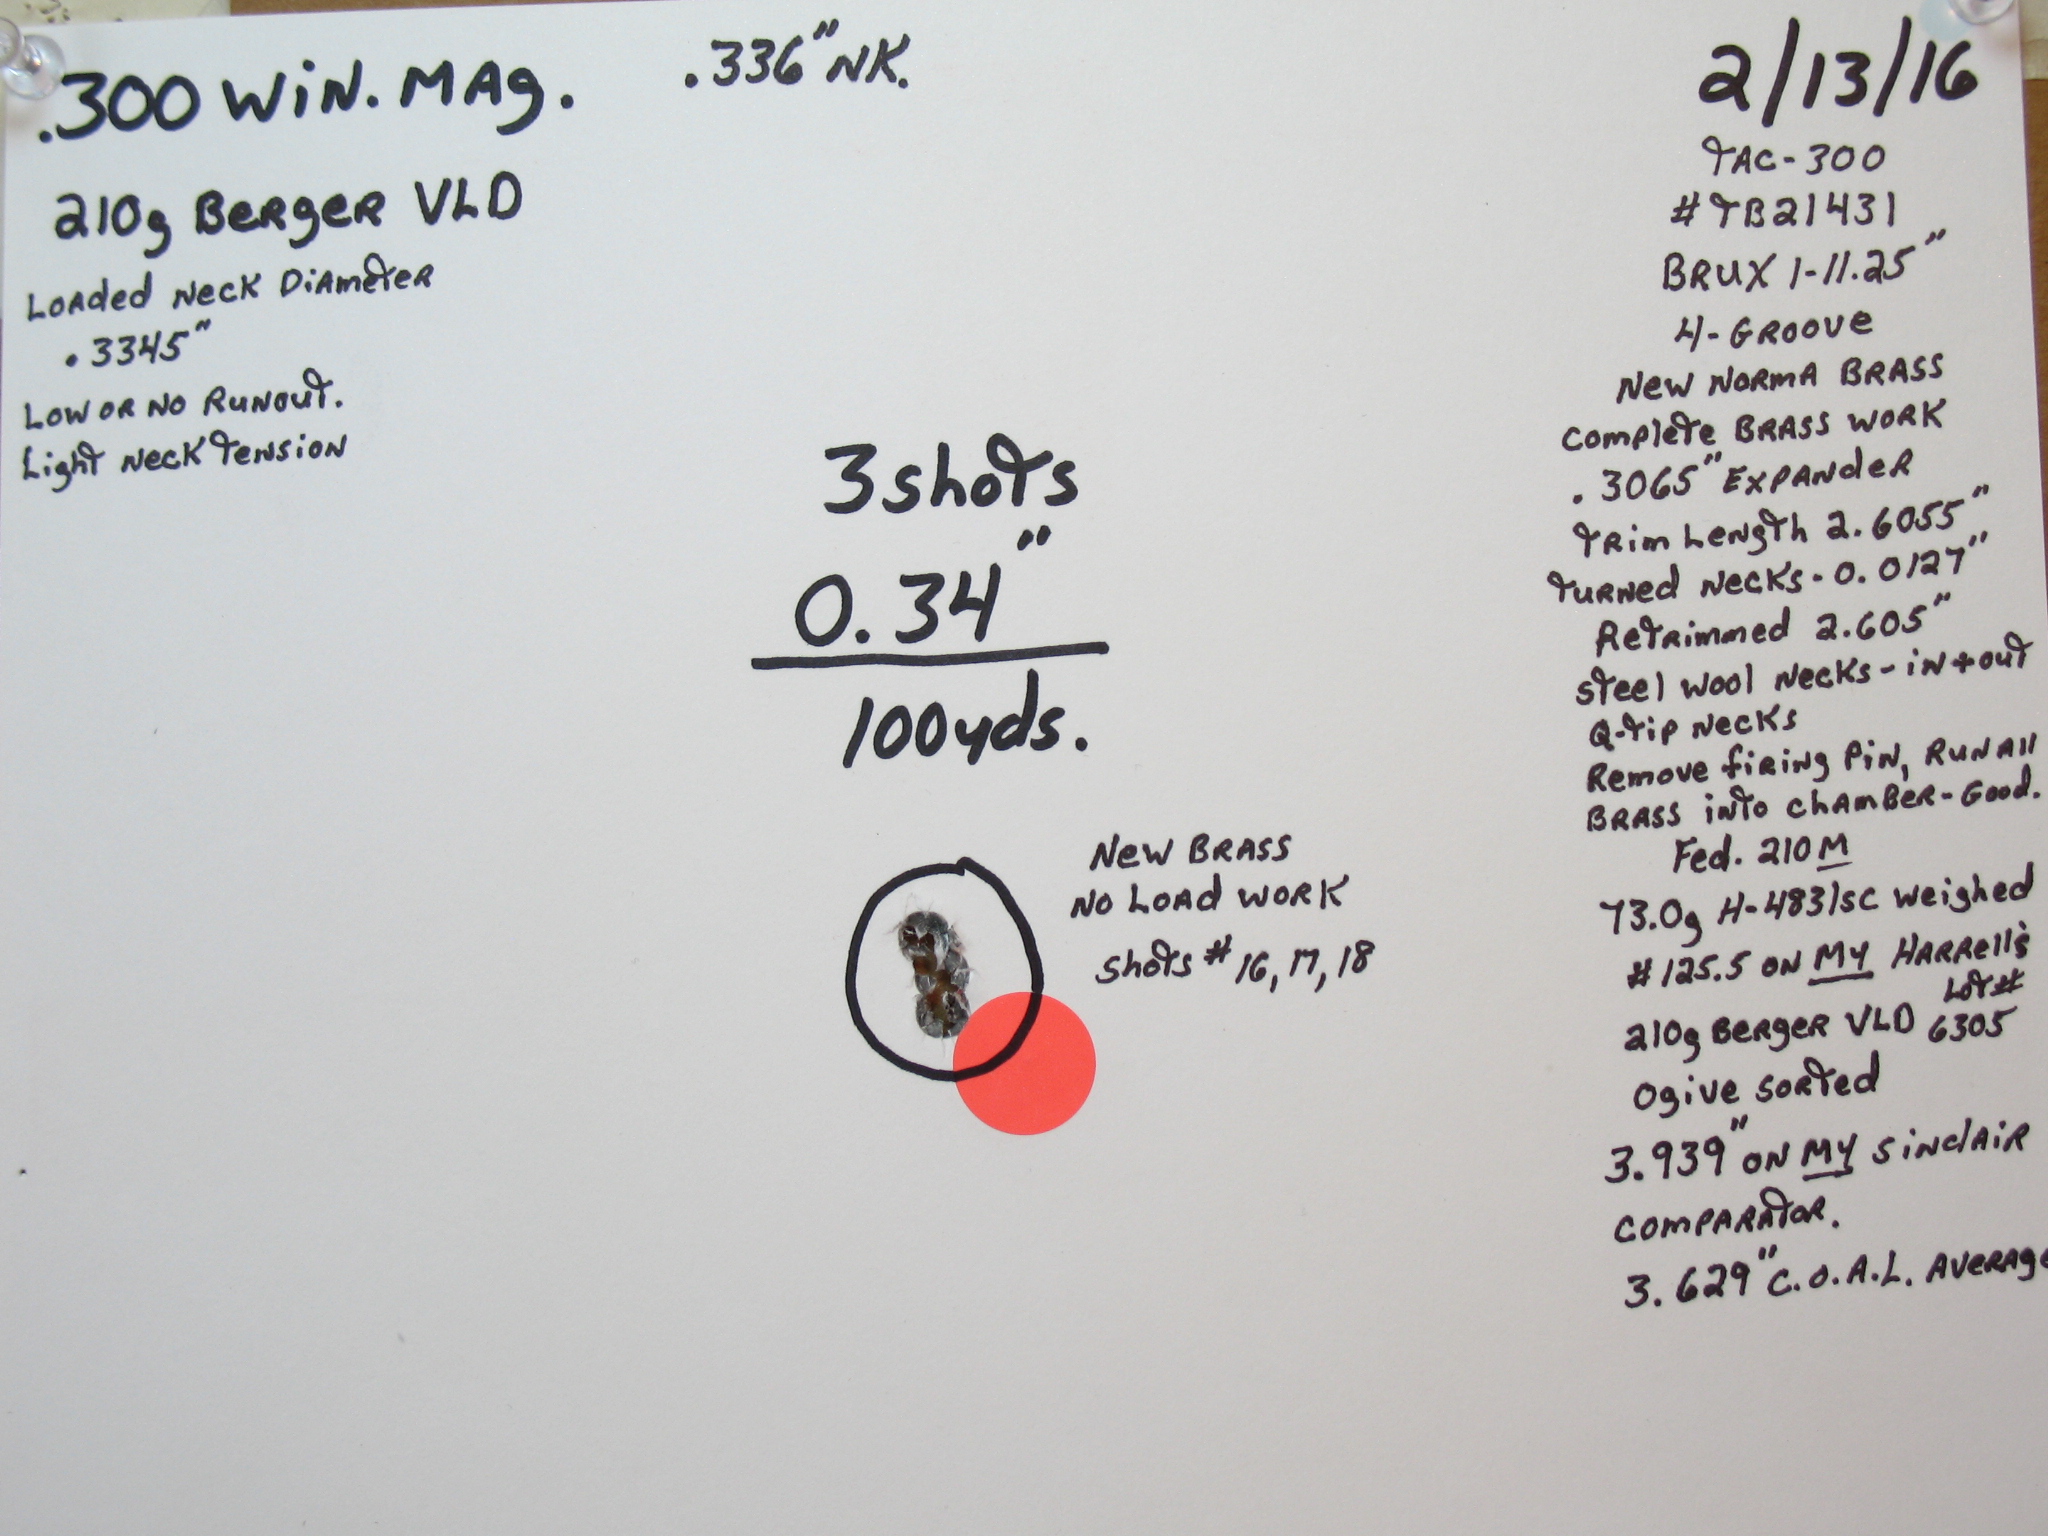 .300 WIN. MAG.
.336" NK.
210g BERGER VLD
LOADED NECK DIAMETER
.3345"
LOW OR NO RUNOUT.
Light NECK TENSION
3 shots
0.34"
100yds.
NEW BRASS
NO LOAD WORK
Shots # 16, 17, 18
2/13/16
TAC-300
#TB21431
BRUX 1-11.25"
4-GROOVE
NEW NORMA BRASS
COMPLETE BRASS WORK
.3065" EXPANDER
TRIM LENGTH 2.6055"
TURNED NECKS-0.0127"
RETRIMMED 2.605"
STEEL WOOL NECKS-IN+OUT
Q-TIP NECKS
REMOVE FIRING PIN, RUN ALL
BRASS INTO CHAMBER-GOOD.
Fed. 210M
73.0g H-4831SC WEIGHED
#125.5 ON MY HARRELL'S
210g BERGER VLD LOT# 6305
OGIVE SORTED
3.939" ON MY SINCLAIR
COMPARATOR.
3.629" C.O.A.L. AVERAGE